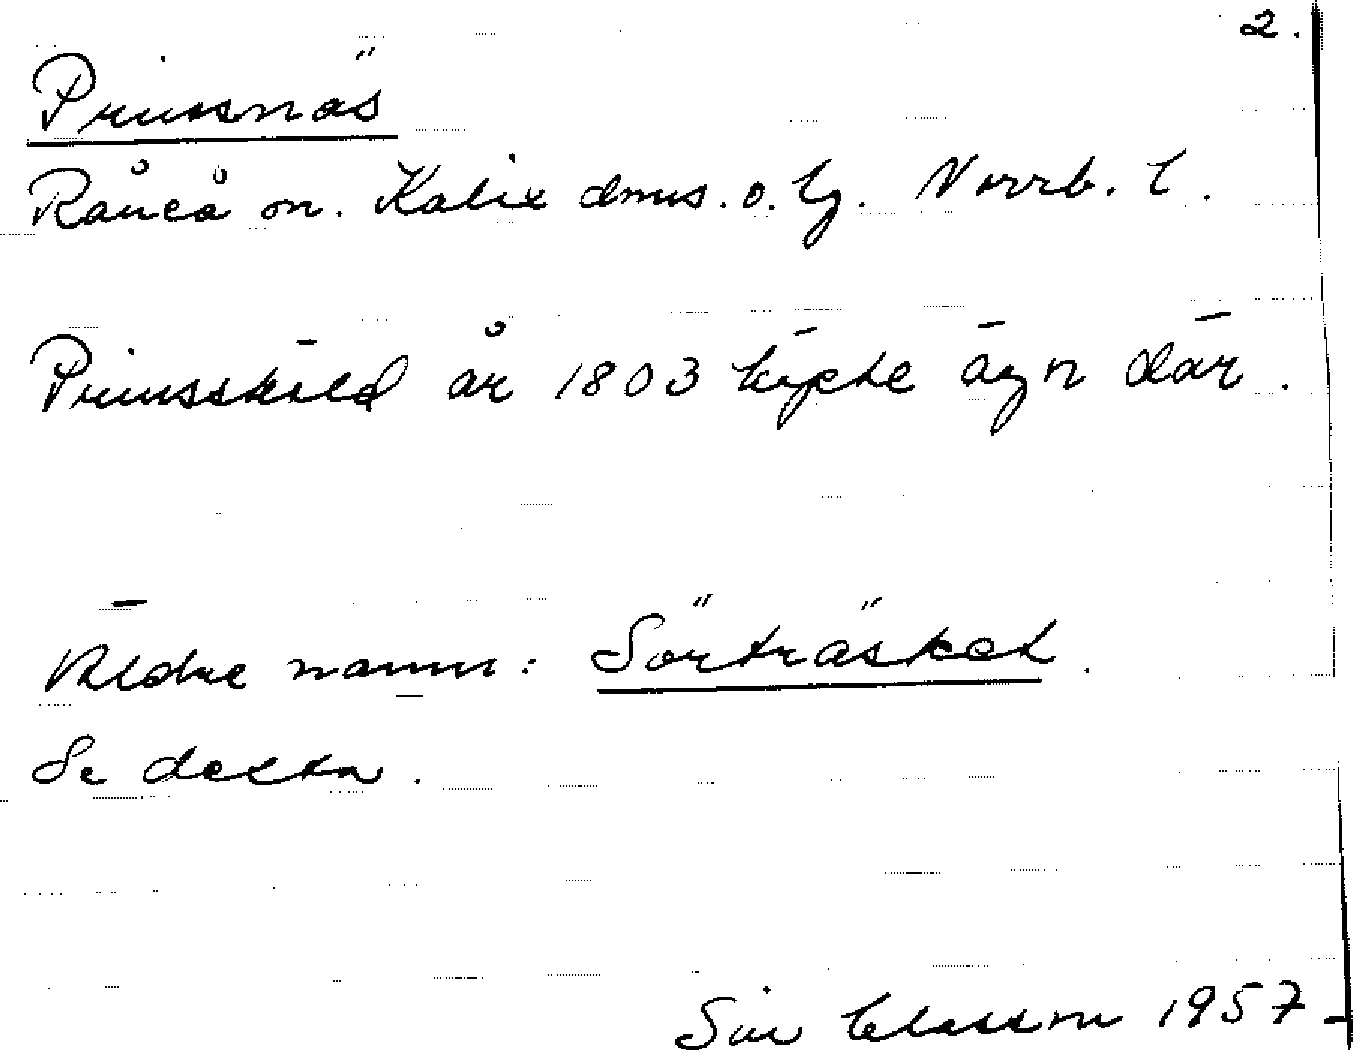 2.
Prinsnäs
Råneå sn. Kalix dms. o. lg. Norrb. l.
Prinssköld år 1803 köpte ägn där.
Äldre namn: Sörträsket.
Se detta.
Siv Classon 1957